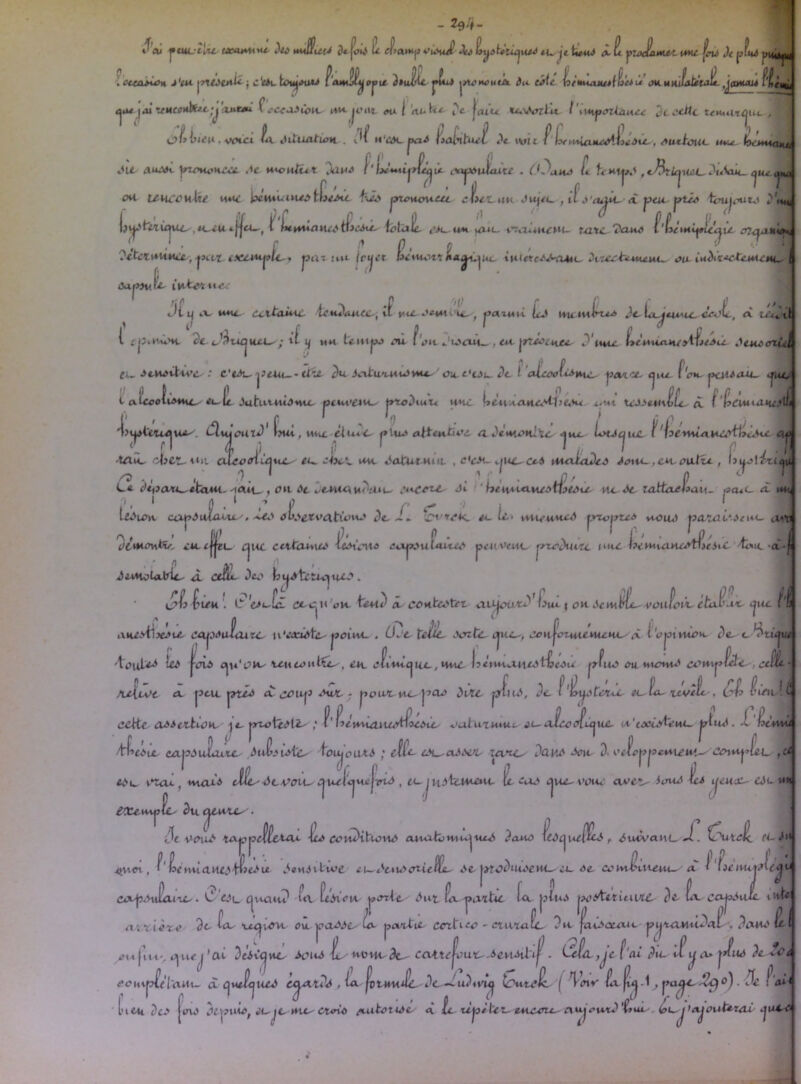 - 294 -
J'ai peut-être examiné des milliers de fois le champ visuel des hystériques et je tiens à le proclamer une fois de plus
l'occasion s'en présente ; c'est toujours l'amblyopie double plus prononcée du côté hémianesthésié ou unilatérale, jamais
que j'ai rencontrée ; j'aurai l'occasion un jour ou l'autre de faire ressortir l'importance de cette remarque.
Eh bien, voici la situation. Il n'est pas habituel de voir l'hémianesthésie, surtout une
sie aussi prononcée se montrer dans l'hémiplégie capsulaire. Dans le temps, Briquet disait que
on rencontre une hémianesthésie très prononcée chez un sujet, il s'agit à peu près toujours
hystérique, et en effet, l'hémianesthésie totale est un fait vraiment rare dans l'hémiplégie
déterminée, par exemple, par un foyer hémorrhagique intéressant directement ou indirectement
capsule interne.
Il y a une certaine tendance, il me semble, parmi les membres de la jeune école, à
l'opinion de Briquet ; il y un temps où l'on disait, en présence d'une hémianesthésie
et sensitive : c'est peut-être du saturnisme ou c'est de l'alcoolisme parce que l'on pensait que
l'alcoolisme et le saturnisme peuvent produire une hémianesthésie qui ressemble à
hystérique. Aujourd'hui, une étude plus attentive a démontré que lorsque l'hémianesthésie
chez un alcoolique et chez un saturnin, c'est que ces malades sont, en outre,
Ce départ étant fait, on se demandait encore si l'hémianesthésie ne se rattachait pas à
lésion capsulaire. Les observations de L. Türck et les miennes propres nous paraissent
démontré, en effet que certaines lésions capsulaires peuvent produire une hémianesthésie tout-à-
semblable à celle des hystériques.
Eh bien ! C'est là ce qu'on tend à contester aujourd'hui ; on semble vouloir établir que
anesthésie capsulaire n'existe point. De telle sorte que, conformément à l'opinion de
toutes les fois qu'on rencontre, en clinique, une hémianesthésie plus ou moins complète,
relève à peu près à coup sûr ; pour ne pas dire plus, de l'hystérie et la révèle. Eh bien !
cette assertion je proteste ; l'hémianesthésie saturnine et alcoolique n'existent plus.
thésie capsulaire subsiste toujours ; elle est assez rare dans son développement complet,
est vrai, mais elle se voit quelquefois, et justement le cas que vous avez sous les yeux est un
exemple du genre.
Je vous rappellerai les conditions anatomiques dans lesquelles, suivant L. Türck et
l'hémianesthésie sensitive et sensorielle se produisent et se combinent à
capsulaire. C'est quand la lésion porte sur la partie la plus postérieure de la capsule
arrière de la région où passe la partie cortico-crurale du faisceau pyramidal, dans le
enfin, que j'ai désigné sous le nom de carrefour sensitif. Cela, je l'ai dit il y a plus de
complétant à quelques égards, la formule de Ludwig Türck (Voir la fig. 1, page 290). Je l'ai
bien des fois depuis, et je me crois autorisé à le répéter encore aujourd'hui. Et j'ajouterai